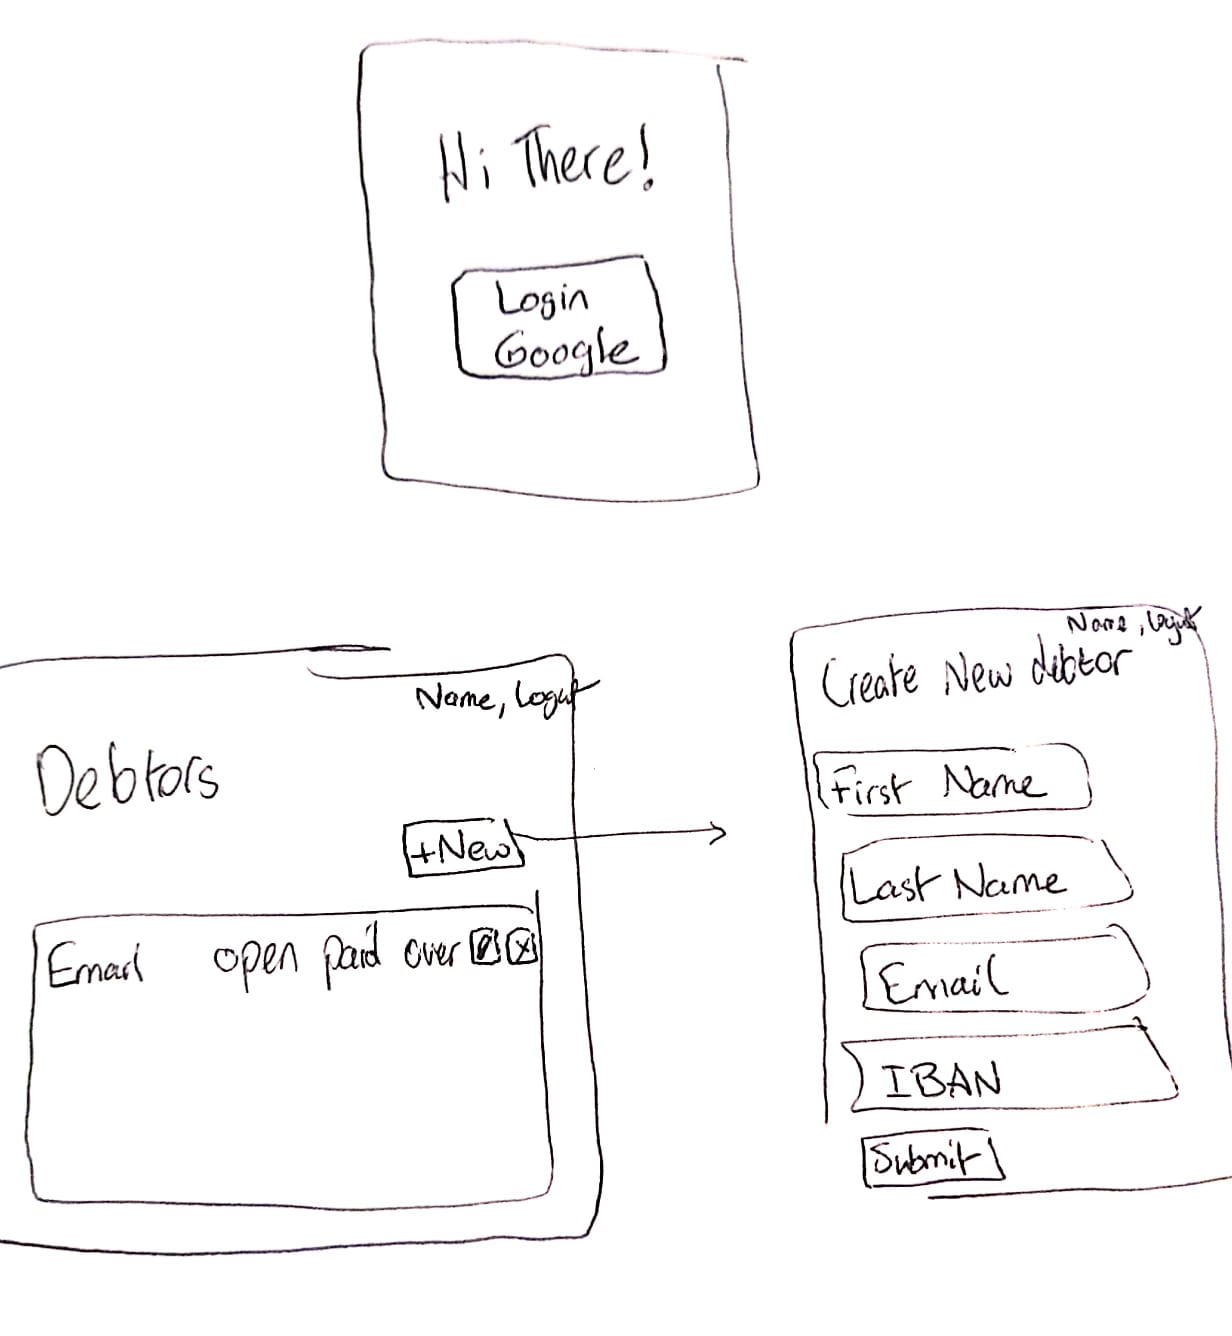 Hi There!
Login
Google
Name, Logout
Debtors
+New
Email open paid over
Name, Logout
Create New debtor
First Name
Last Name
Email
IBAN
Submit